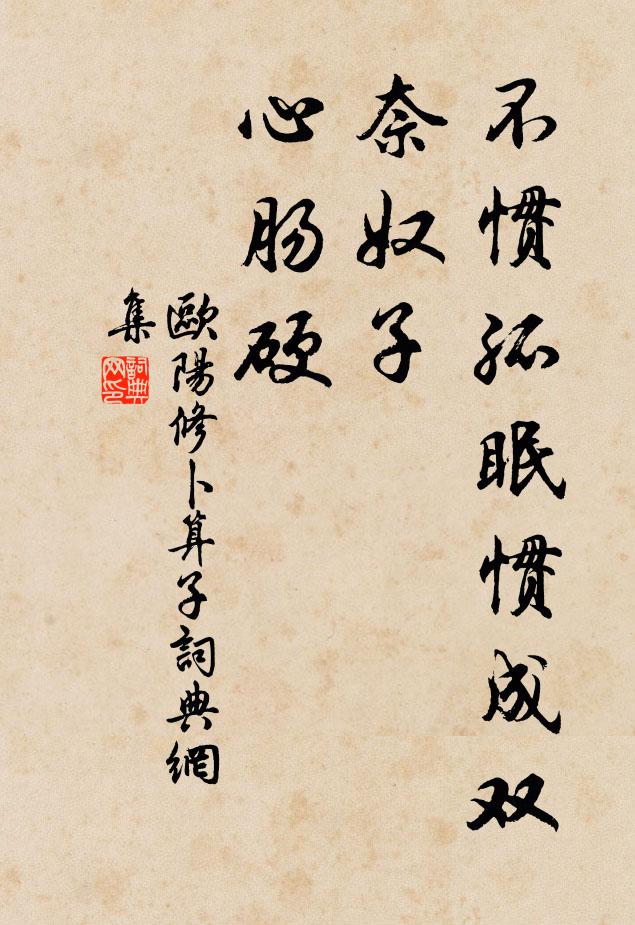 不惯孤眠惯成双
奈奴子
心肠硬
歐陽修卜算子詞典網
集
詞典
网印